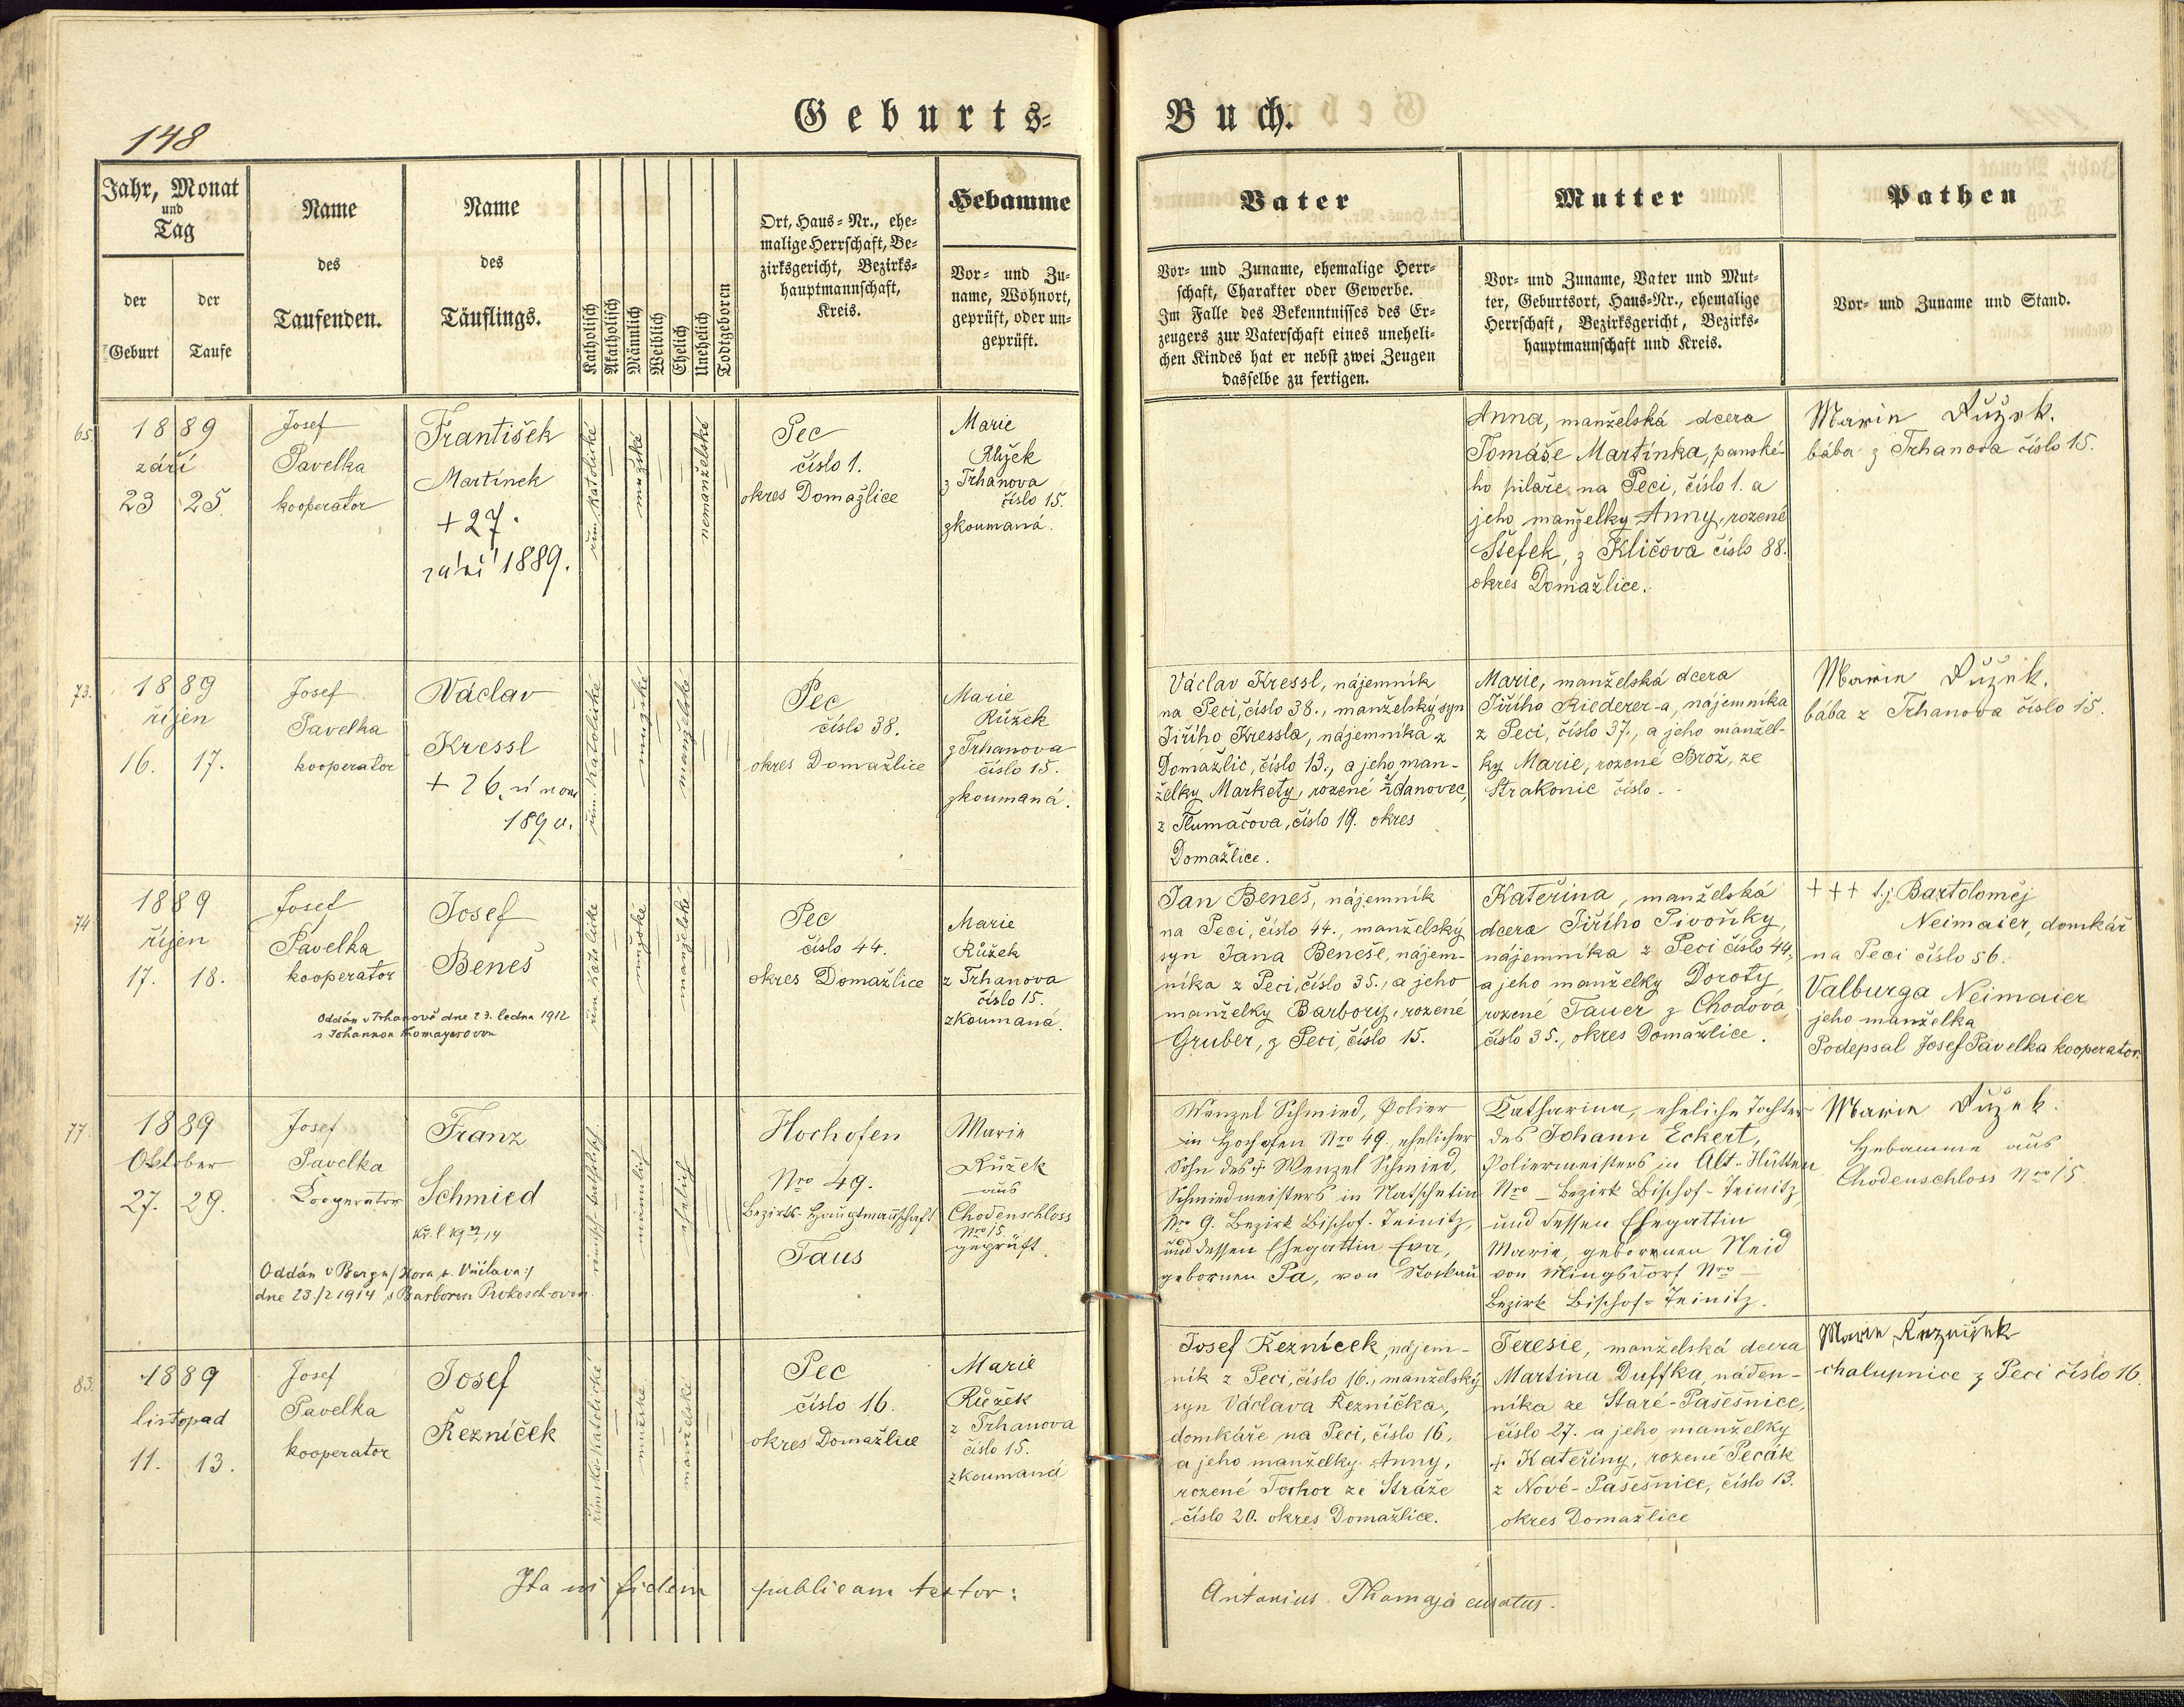 148
Geburts=
Buch.
Jahr, Monat
und
Tag
der
Geburt
der
Taufe
Name
des
Taufenden.
Name
des
Täuflings.
Katholisch
Akatholisch
Männlich
Weiblich
Ehelich
Unehelich
Todtgeboren
Ort, Haus=Nr., ehe=
malige Herrschaft, Be=
zirksgericht, Bezirks=
hauptmannschaft,
Kreis.
Hebamme
Vor= und Zu=
name, Wohnort,
geprüft, oder un=
geprüft.
Vater
Vor= und Zuname, ehemalige Herr=
schaft, Charakter oder Gewerbe.
Im Falle des Bekenntnisses des Er=
zeugers zur Vaterschaft eines uneheli=
chen Kindes hat er nebst zwei Zeugen
dasselbe zu fertigen.
Mutter
Vor= und Zuname, Vater und Mut=
ter, Geburtsort, Haus=Nr., ehemalige
Herrschaft, Bezirksgericht, Bezirks=
hauptmannschaft und Kreis.
Pathen
Vor= und Zuname und Stand.
65.
1889
září
23 25
Josef
Pavelka
kooperator
František
Martínek
+ 27.
září 1889.
řím. katolické
mužské
nemanželské
Pec
číslo 1.
okres Domažlice
Marie
Růžek
z Trhanova
číslo 15.
zkoumaná.
Anna, manželská dcera
Tomáše Martínka, panské-
ho pilaře na Peci, číslo 1. a
jeho manželky Anny, rozené
Štefek, z Kličova číslo 88.
okres Domažlice.
Marie Růžek.
bába z Trhanova číslo 15.
73.
1889
říjen
16. 17.
Josef
Pavelka
kooperator
Václav
Kressl
+ 26. února
1890.
řím. katolické
mužské
manželské
Pec
číslo 38.
okres Domažlice
Marie
Růžek
z Trhanova
číslo 15.
zkoumaná.
Václav Kressl, nájemník
na Peci, číslo 38., manželský syn
Jiřího Kressla, nájemníka z
Domažlic, číslo 13., a jeho man-
želky Markety, rozené Ždanovec,
z Tlumačova, číslo 19. okres
Domažlice.
Marie, manželská dcera
Jiřího Riederer-a, nájemníka
z Peci, číslo 37., a jeho manžel-
ky Marie, rozené Brož, ze
Strakonic číslo -
Marie Růžek.
bába z Trhanova číslo 15.
74
1889
říjen
17. 18.
Josef
Pavelka
kooperator
Josef
Beneš
Oddán v Trhanově dne 23. ledna 1912
s Johannou Thomayerovou
řím. katolické
mužské
manželské
Pec
číslo 44.
okres Domažlice
Marie
Růžek
z Trhanova
číslo 15.
zkoumaná.
Jan Beneš, nájemník
na Peci, číslo 44., manželský
syn Jana Beneše, nájem-
níka z Peci, číslo 35., a jeho
manželky Barbory, rozené
Gruber, z Peci, číslo 15.
Kateřina, manželská
dcera Jiřího Pivoňky,
nájemníka z Peci číslo 44,
a jeho manželky Doroty
rozené Tauer z Chodova
číslo 35., okres Domažlice.
+++ t.j. Bartoloměj
Neimaier, domkář
na Peci číslo 56.
Valburga Neimaier
jeho manželka
Podepsal Josef Pavelka kooperator.
77.
1889
Oktober
27. 29.
Josef
Pavelka
Kooperator
Franz
Schmied
Oddán v Bergu /Hora s. Václava:/
dne 23./2 1914 s Barborou Prokosch-ovou.
männlich
ehelich
Hochofen
Nro 49.
Bezirks-Hauptmannschaft
Taus
Marie
Růžek
aus
Chodenschloss
Nro 15.
geprüft.
Wenzel Schmied, Polier
in Hochofen Nro 49. ehelicher
Sohn des + Wenzel Schmied,
Schmiedmeisters in Natschetin
Nro 9. Bezirk Bischof-Teinitz,
und dessen Ehegattin Eva,
gebornen Pa, von Stockau
Katharina, eheliche Tochter
des Johann Eckert,
Poliermeisters in Alt-Hütten
Nro _ Bezirk Bischof-Teinitz
und dessen Ehegattin
Marie, gebornen Neid
von Mingsdorf Nro _
Bezirk Bischof-Teinitz.
Marie Růžek.
Hebamme aus
Chodenschloss Nro 15.
83.
1889
listopad
11. 13.
Josef
Pavelka
kooperator
Josef
Řezníček
římsko-katolické
mužské
manželské
Pec
číslo 16.
okres Domažlice
Marie
Růžek
z Trhanova
číslo 15.
zkoumaná
Josef Řezníček, nájem-
ník z Peci, číslo 16., manželský
syn Václava Řezníčka,
domkáře na Peci, číslo 16,
a jeho manželky Anny,
rozené Tochor ze Stráže
číslo 20. okres Domažlice.
Teresie, manželská dcera
Martina Duffka, náden-
níka ze Staré-Pasěšnice,
číslo 27. a jeho manželky
+ Kateřiny, rozené Pecák
z Nové-Pasěšnice, číslo 13.
okres Domažlice
Marie Řezníček
chalupnice z Peci číslo 16.
Ita in fidem publicam testor:
Antonius Thomaja curatus.